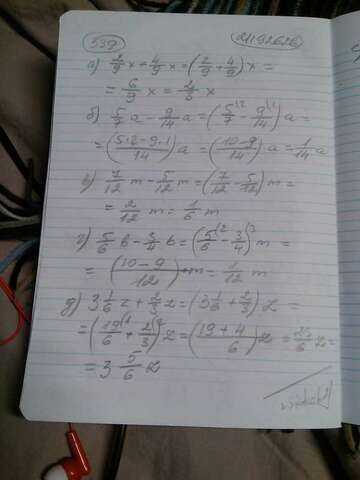 539
а) 2/9 x + 4/9 x = (2/9 + 4/9) x =
= 6/9 x = 2/3 x
б) 5/7 a - 9/14 a = (5/7 \2 - 9/14 \1) a =
= ((5·2-9·1)/14) a = ((10-9)/14) a = 1/14 a
в) 7/12 m - 5/12 m = (7/12 - 5/12) m =
= 2/12 m = 1/6 m
г) 5/6 b - 3/4 b = (5/6 \2 - 3/4 \3) m =
= ((10-9)/12) m = 1/12 m
д) 3 1/6 z + 2/3 z = (3 1/6 + 2/3) z =
= (19/6 \1 + 2/3 \2) z = ((19+4)/6) z = 23/6 z =
= 3 5/6 z